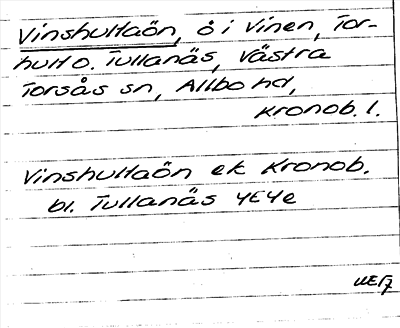 Vinshultaön, ö i Vinen, Tor-
hult o. Tullanäs, Västra
Torsås sn, Allbo hd,
Kronob. l.
Vinshultaön ek Kronob.
bl. Tullanäs 4E4e